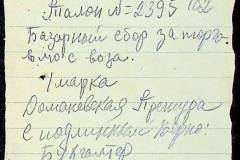 Талон №=2395
Базарный сбор за торго
влю с воза.
1 марка
Доманевская Претура
С подлинным верно:
Бухгалтер